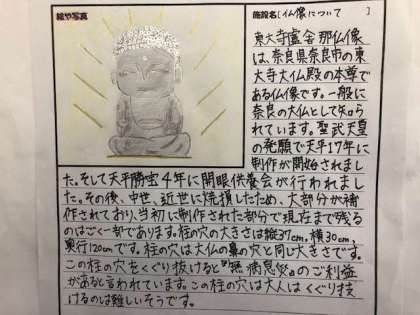 絵や写真
施設名[仏像について]
東大寺盧舎那仏像
は、奈良県奈良市の東
大寺大仏殿の本尊で
ある仏像です。一般に
奈良の大仏として知ら
れています。聖武天皇
の発願で天平17年に
制作が開始されまし
た。そして天平勝宝4年に開眼供養会が行われまし
た。その後、中世、近世に焼損したため、大部分が補
作されており、当初に制作された部分で現在まで残る
のはごく一部であります。柱の穴の大きさは縦37cm、横30cm、
奥行120cmです。柱の穴は大仏の鼻の穴と同じ大きさです。
この柱の穴をくぐり抜けると『無病息災』のご利益
があると言われています。この柱の穴は大人はくぐり抜
けるのは難しいそうです。